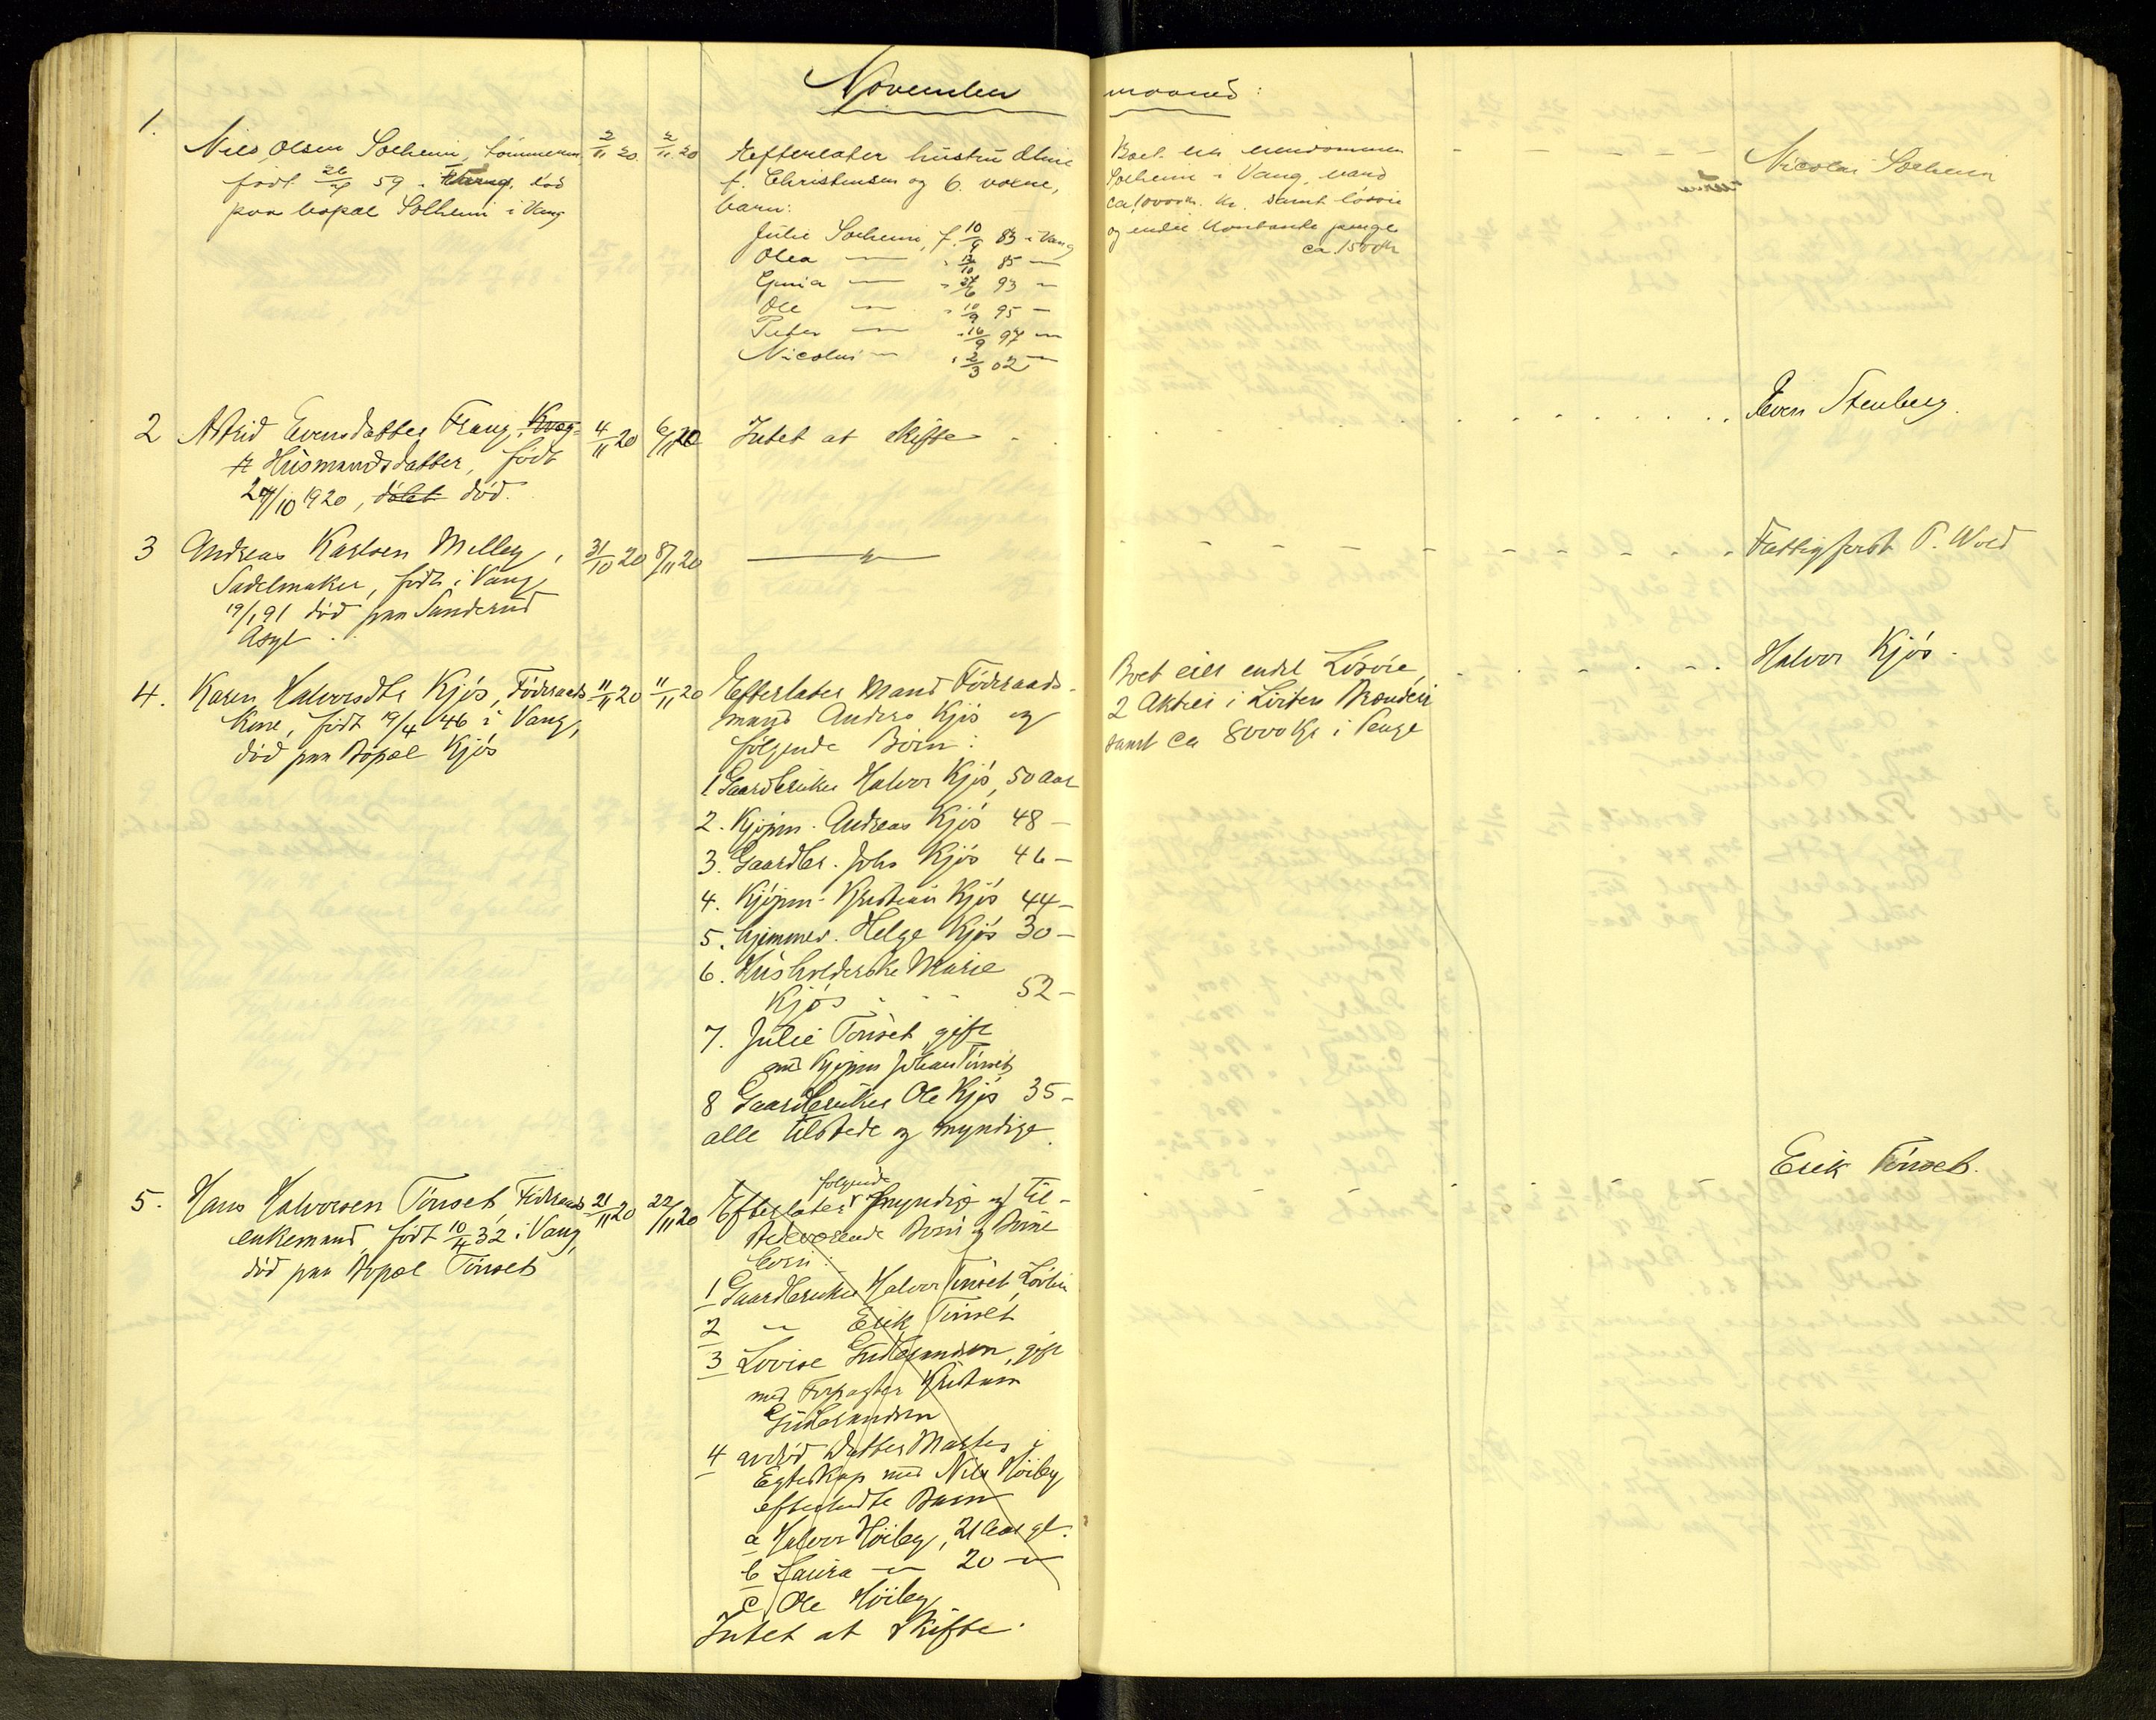 November maaned:
1.
Nils Olsen Solheim, tömmerm.
född 26/4 59 i Vang, död
paa bopæl Solheim i Vang
2/11 20
2/11 20
Efterlater hustru Oline
f. Christensen og 6. voxne,
barn:
Julie Solheim, f. 10/9 83 i Vang
Olea — " 13/10 85 —
Gina — " 27/6 93 —
Ole — " 10/9 95 —
Peter — " 16/9 97 —
Nicolai — " 2/3 02 —
Boet eier eiendommen
Solheim i Vang, værd
ca. kr. samt lösöre
og endel kontante penge
ca. 1500 Kr
Nicolai Solheim
2 Astrid Evensdatter Frang,
Husmandsdatter, född
24/10 1920, död.
4/11 20
6/11 20
Intet at skifte
Even Stenberg.
3 Andreas Karlsen Melby,
Sadelmaker, född i Vang,
19/1 91 död paa Sanderud
Asyl
31/10 20
8/11 20
— " —
Fattigforst P. Wold
4. Karen Halvorsdtr Kjös, Föderaads
kone, född 19/4 46 i Vang,
död paa Bopæl Kjös
11/11 20
11/11 20
Efterlater Mand Föderaads-
mand Anders Kjös og
følgende Börn:
1 Gaardbruker Halvor Kjös, 50 Aar
2. Kjöpm. Andreas Kjös 48 —
3. Gaardbr. Johs Kjös 46 —
4. Kjöpm. Kristian Kjös 44 —
5. hjemmev. Helge Kjös 30 —
6. Husholderske Marie
Kjös 52 —
7. Julie Tönset, gift
med Kjöpm Johan Tönset
8 Gaardbruker Ole Kjös 35 —
alle tilstede og myndige.
Boet eier endel Lösöre,
2 Aktier i Löiten Brænderi
samt ca 8000 Kr i Penge
Halvor Kjös.
5. Hans Halvorsen Tönset, Föderaads
enkemand, född 10/4 32 i Vang,
död paa Bopæl Tönset
21/11 20
22/11 20
følgende
Efterlater myndige og til-
stedeværende Börn og Börne
börn:
1 Gaardbruker Halvor Tönset, Löiten
2 — Erik Tönset
3 Lovise Gudbrandsen, gift
med Forpagter Kristian
Gudbrandsen
4 avdöd Datter Marthes i
Egteskap med Nils Höiby
efterladte Barn
a Halvor Höiby, 21 Aar gl.
b Laura — 20 —
c Ole Höiby
Intet at skifte.
Erik Tönset.